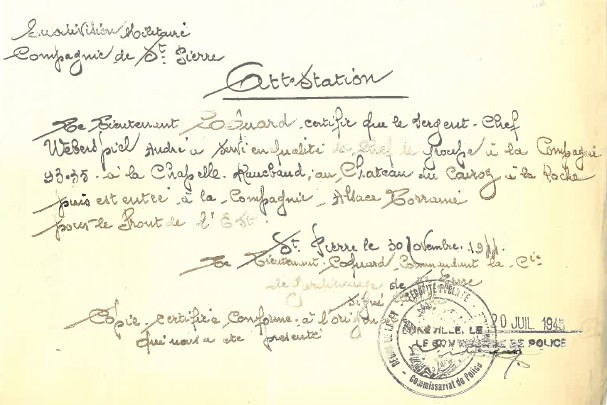 Subdivision Militaire
Compagnie de St. Pierre
Attestation
Le Lieutenant Coguard certifie que le Sergent-Chef
Weberspiel André a servi en qualité de Chef de groupe à la Compagnie
à la Chapelle au Chateau du à la Roche
puis est entré à la Compagnie Alsace Lorraine
pour le Front de l'Est.
St. Pierre le 30 Novembre 19
Le Lieutenant Coguard Commandant la Cie
de St. Pierre
signé
Copie certifiée conforme à l'original
qui nous a été présenté
20 JUIL. 1945
VILLE, LE
LE COMMISSAIRE DE POLICE
SECURITE PUBLIQUE
Commissariat de Police